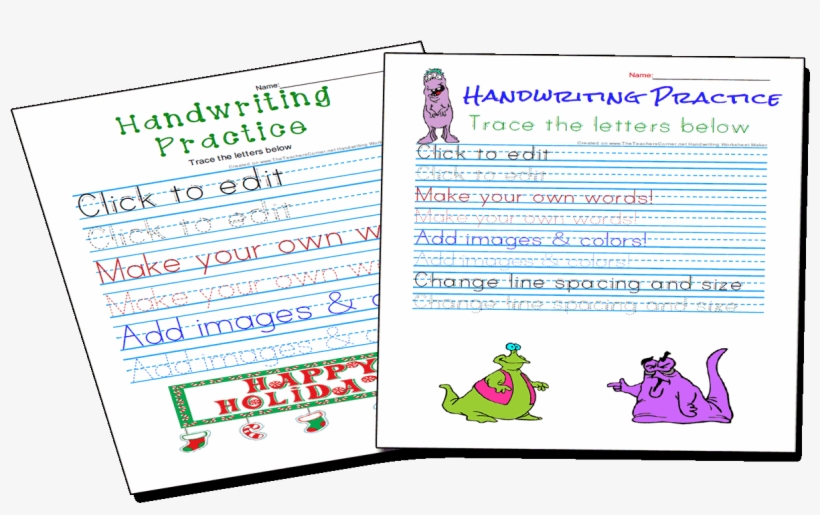 Name:
Handwriting
Practice
Trace the letters below
Click to edit
Click to edit
Make your own w
Make your own w
Add images &
Add images &
HAPPY
HOLIDA
Name:
Handwriting Practice
Trace the letters below
Created on www.TheTeachersCorner.net Handwriting Worksheet Maker
Click to edit
Click to edit
Make your own words!
Make your own words!
Add images & colors!
Add images & colors!
Change line spacing and size
Change line spacing and size